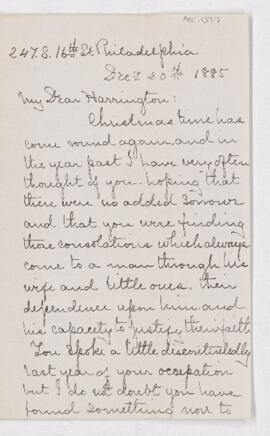 Acc. 1377
247. S. 16th St Philadelphia
Dec. 20th 1885
My Dear Harrington:
Christmas time has
come round again, and in
the year past I have very often
thought of you: hoping that
there were no added sorrows
and that you were finding
those consolations which always
come to a man through his
wife and little ones. their
dependence upon him, and
his capacity to justify their faith
You spoke a little discontentedly
last year of your occupation
but I do not doubt you have
found something now to